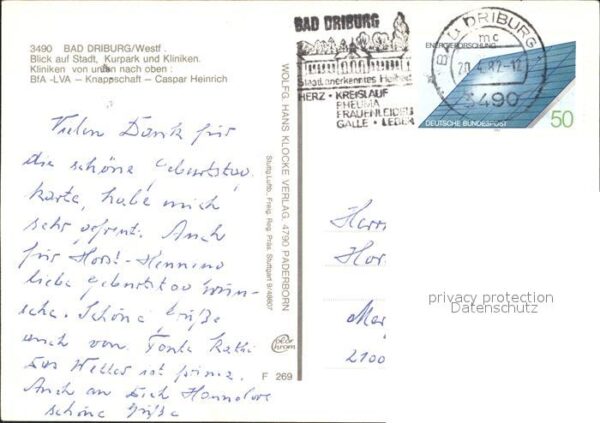 3490 BAD DRIBURG/Westf.
Blick auf Stadt, Kurpark und Kliniken.
Kliniken von unten nach oben:
BfA - LVA – Knappschaft – Caspar Heinrich
Vielen Dank für
die schöne Geburtstags
karte, habe mich
sehr gefreut. Auch
für Horst-Henning
liebe Geburtstag Wün-
sche. Schöne Grüße
auch von Tante Käthi
Das Wetter ist prima.
Auch an Dich Hannelore
schöne Grüße
WOLFG. HANS KLOCKE VERLAG, 4790 PADERBORN
Stuttg. Luftb., Freig. Reg. Präs. Stuttgart 9/48807
color chrom
F 269
BAD DRIBURG
Staatl. anerkanntes Heilbad
HERZ • KREISLAUF
RHEUMA
FRAUENLEIDEN
GALLE • LEBER
BAD DRIBURG
mc
20.4.82-12
3490
ENERGIEFORSCHUNG
DEUTSCHE BUNDESPOST
50
Herr
Hor
privacy protection
Datenschutz
2100